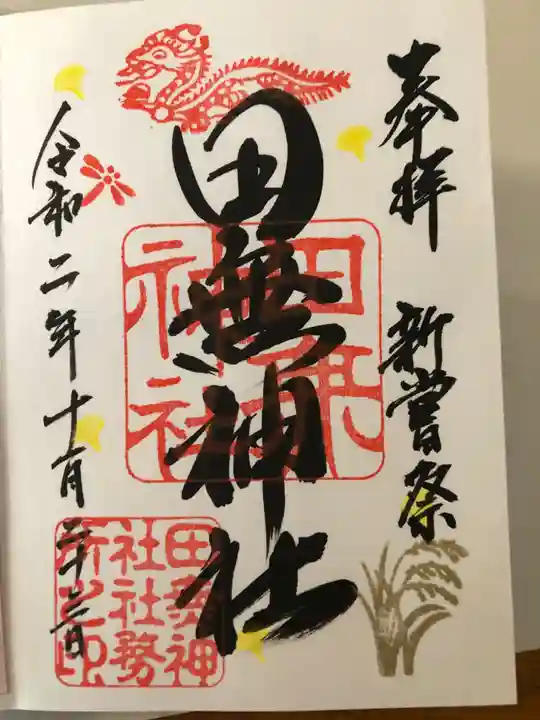 奉拝 新嘗祭
田無神社
令和二年十一月二十三日
田無神社
田無神社社務所之印